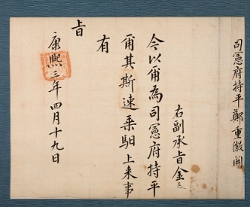 司憲府持平鄭重徽開
右副承旨金
今以爾為司憲府持平
爾其斯速乘馹上来事
有
旨
康熙三年四月十九日